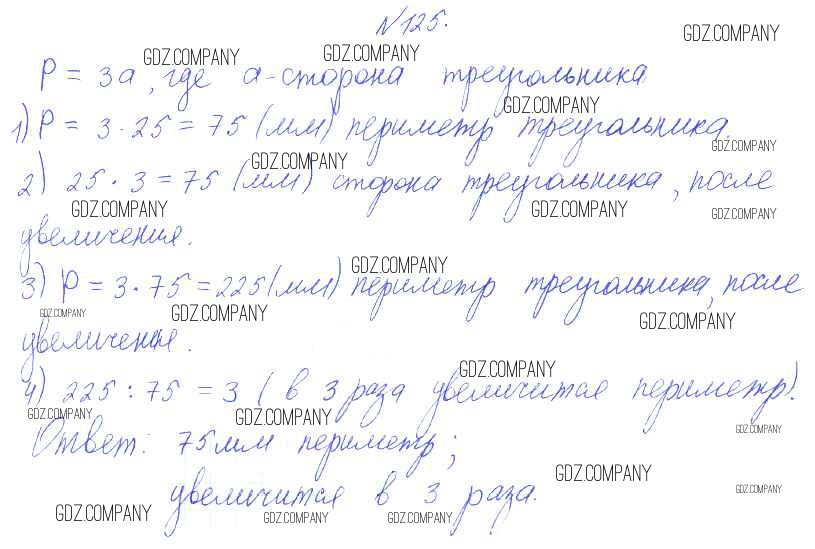 №125.
GDZ.COMPANY GDZ.COMPANY GDZ.COMPANY
P = 3a, где a-сторона треугольника
GDZ.COMPANY
1) P = 3·25 = 75 (мм) периметр треугольника.
GDZ.COMPANY GDZ.COMPANY
2) 25·3 = 75 (мм) сторона треугольника, после
GDZ.COMPANY GDZ.COMPANY GDZ.COMPANY
увеличения.
GDZ.COMPANY
3) P = 3·75 = 225 (мм) периметр треугольника, после
GDZ.COMPANY GDZ.COMPANY GDZ.COMPANY
увеличения.
GDZ.COMPANY
4) 225 : 75 = 3 (в 3 раза увеличится периметр).
GDZ.COMPANY GDZ.COMPANY GDZ.COMPANY
Ответ: 75 мм периметр;
GDZ.COMPANY
увеличится в 3 раза.
GDZ.COMPANY
GDZ.COMPANY GDZ.COMPANY GDZ.COMPANY